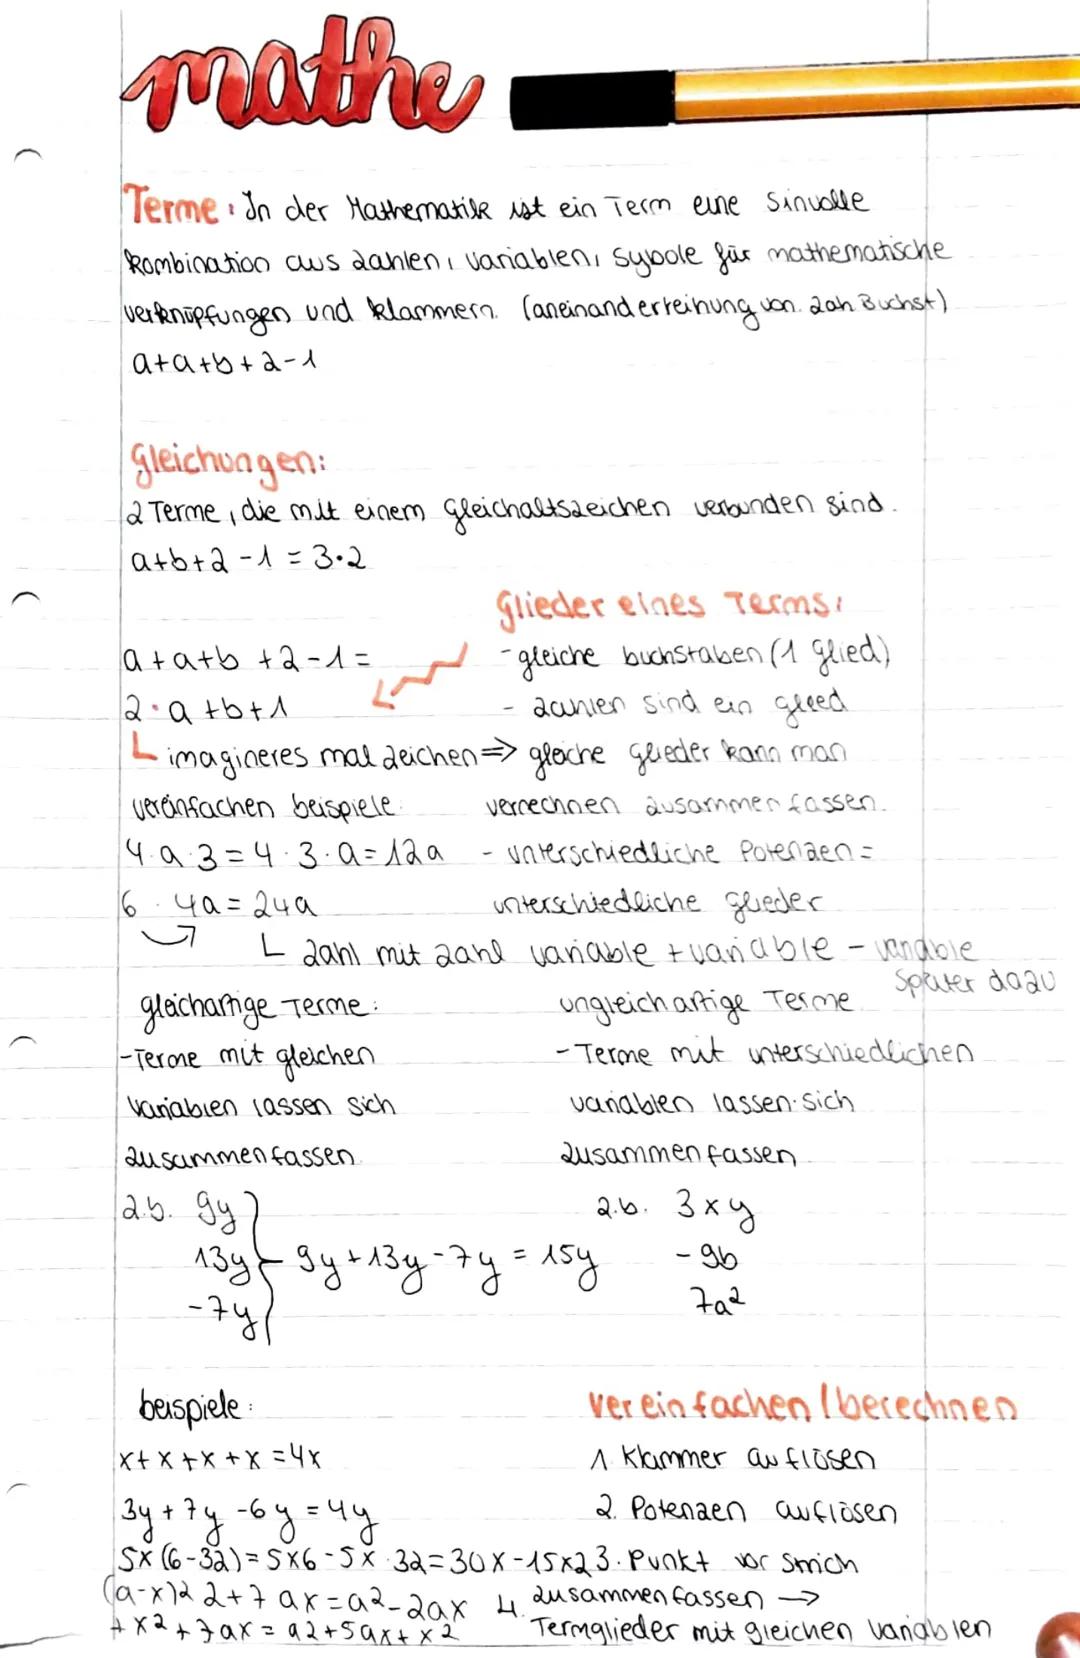 mathe
Terme: In der Mathematik ist ein Term eine Sinvolle
kombination aus zahlen, variablen, sybole für mathematische
verknüpfungen und klammern. (aneinanderreihung von. zah Buchst)
a+a+b+2-1
gleichungen:
2 Terme, die mit einem gleichaltszeichen verbunden sind.
a+b+2-1 = 3·2
glieder eines Terms:
a+a+b+2-1=
- gleiche buchstaben (1 glied)
2·a+b+1
- zahlen sind ein glied
imagineres mal zeichen => gleiche glieder kann man
vereinfachen beispiele:
verrechnen zusammen fassen.
4·a·3=4·3·a=12a
- unterschiedliche Potenzen =
6·4a=24a
unterschiedliche glieder
zahl mit zahl variable + variable - variable
später dazu
gleichartige Terme:
- Terme mit gleichen
variablen lassen sich
zusammenfassen.
z.b. 9y
13y
-7y
9y+13y-7y = 15y
ungleichartige Terme
- Terme mit unterschiedlichen
variablen lassen sich
zusammenfassen.
z.b. 3xy
-9b
7a²
beispiele:
x+x+x+x=4x
3y+7y-6y=4y
5x(6-3z)=5x6-5x·3z=30x-15xz
(a-x)2 2+7ax=a2-2ax
+x2+7ax=a2+5ax+x2
vereinfachen / berechnen
1. Klammer auflösen
2. Potenzen auflösen
3. Punkt vor strich
4. zusammenfassen →
Termglieder mit gleichen variablen